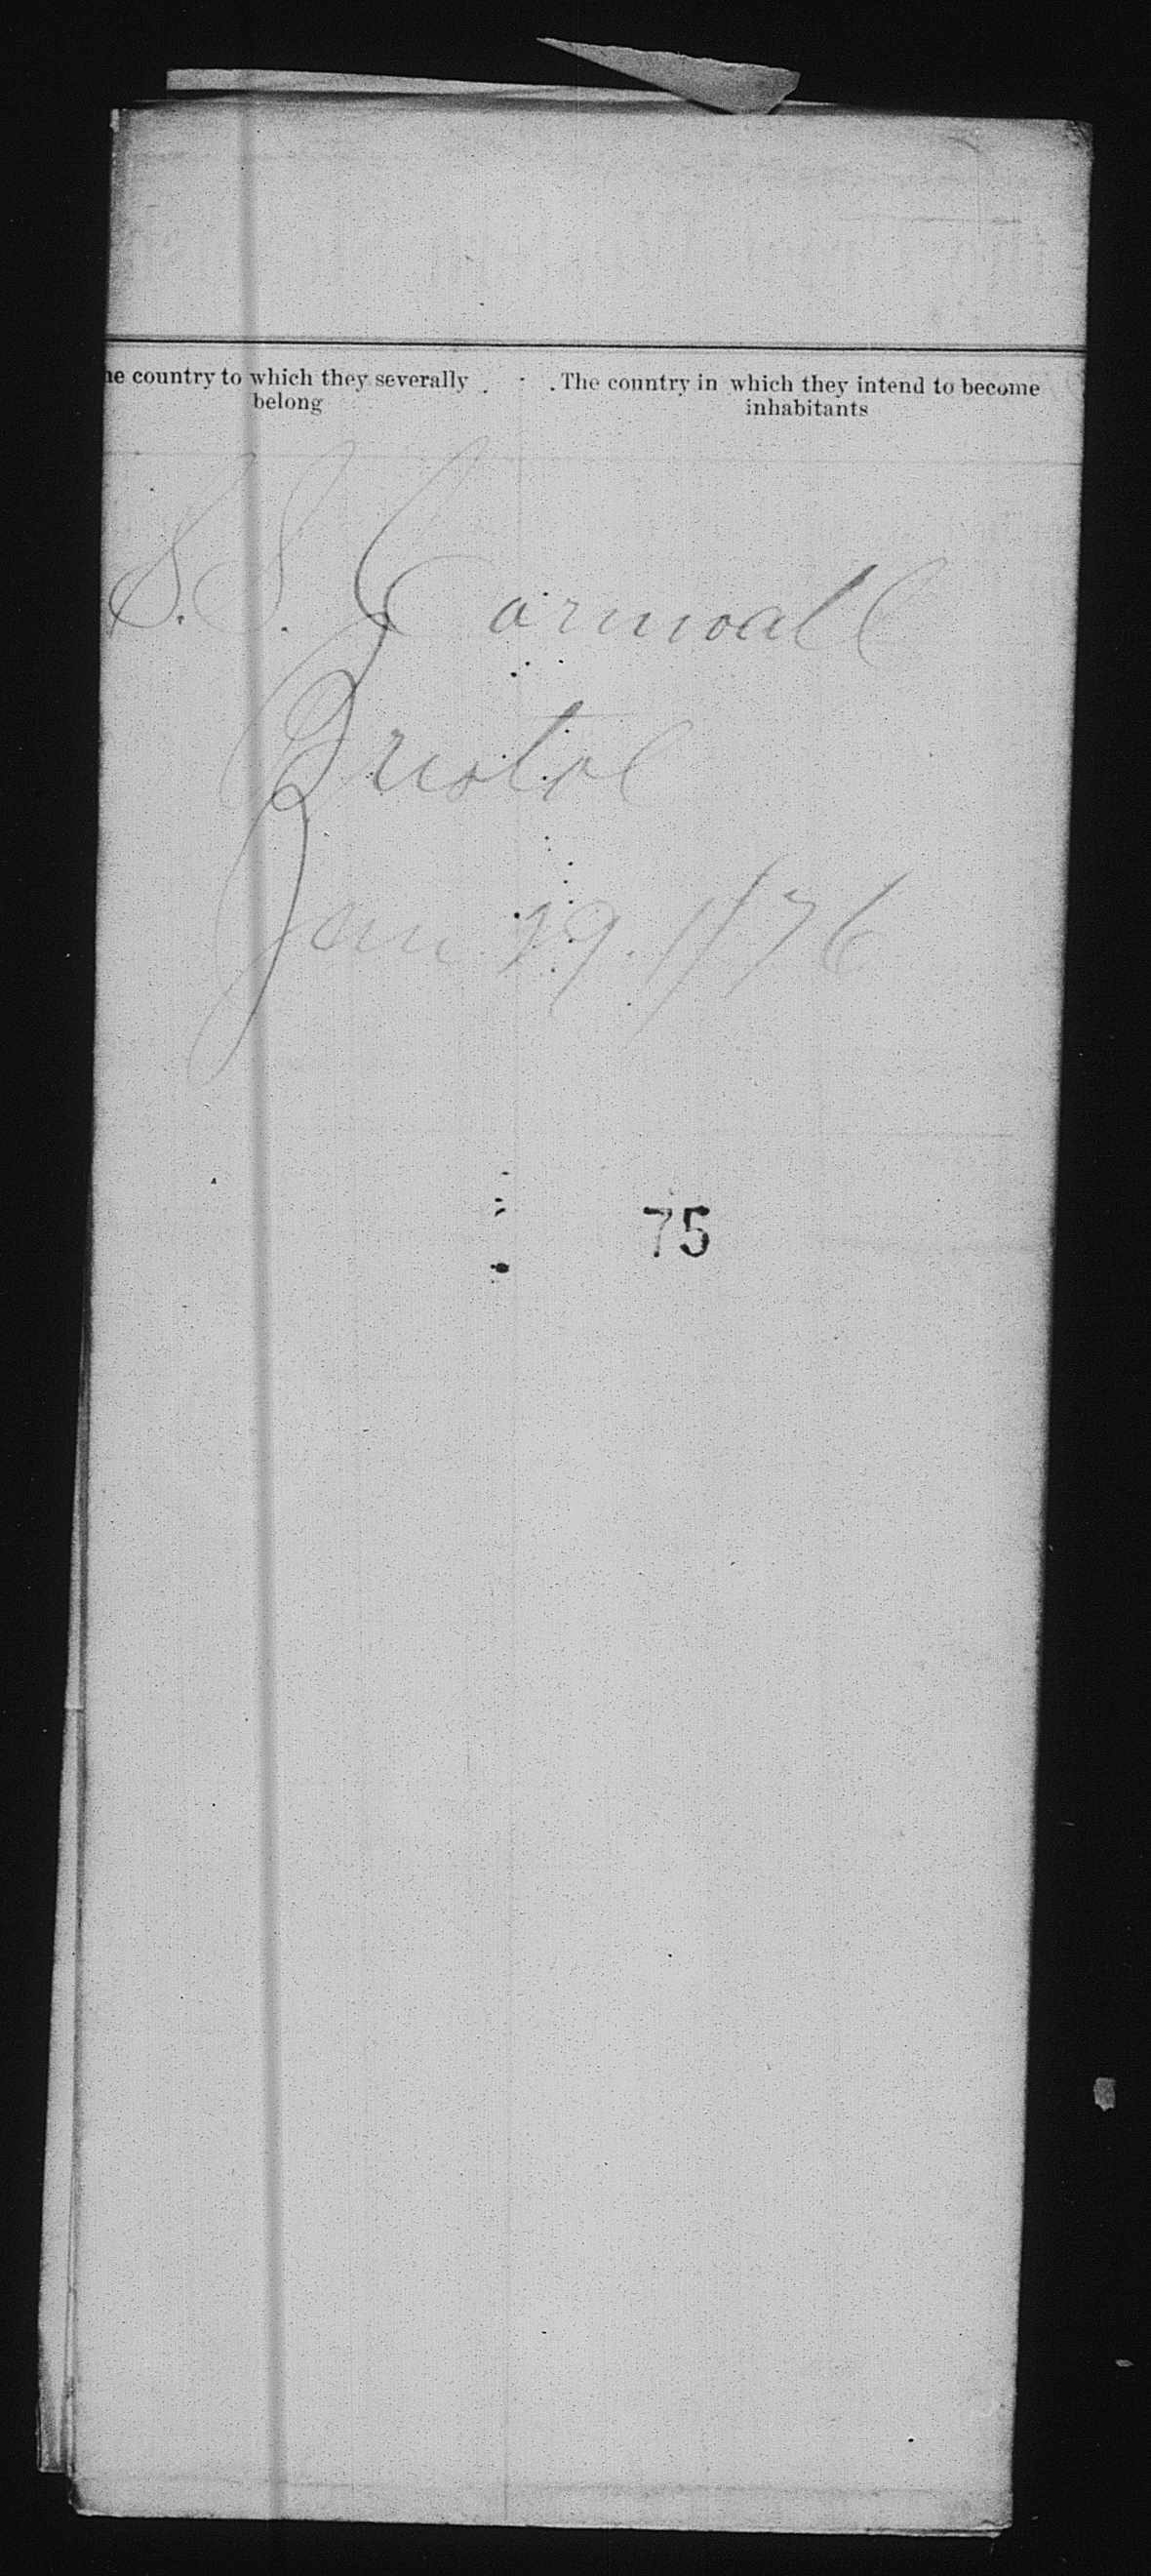 he country to which they severally
belong
The country in which they intend to become
inhabitants
S.S. Cornwall
Bristol
Jan 29. 1876
75